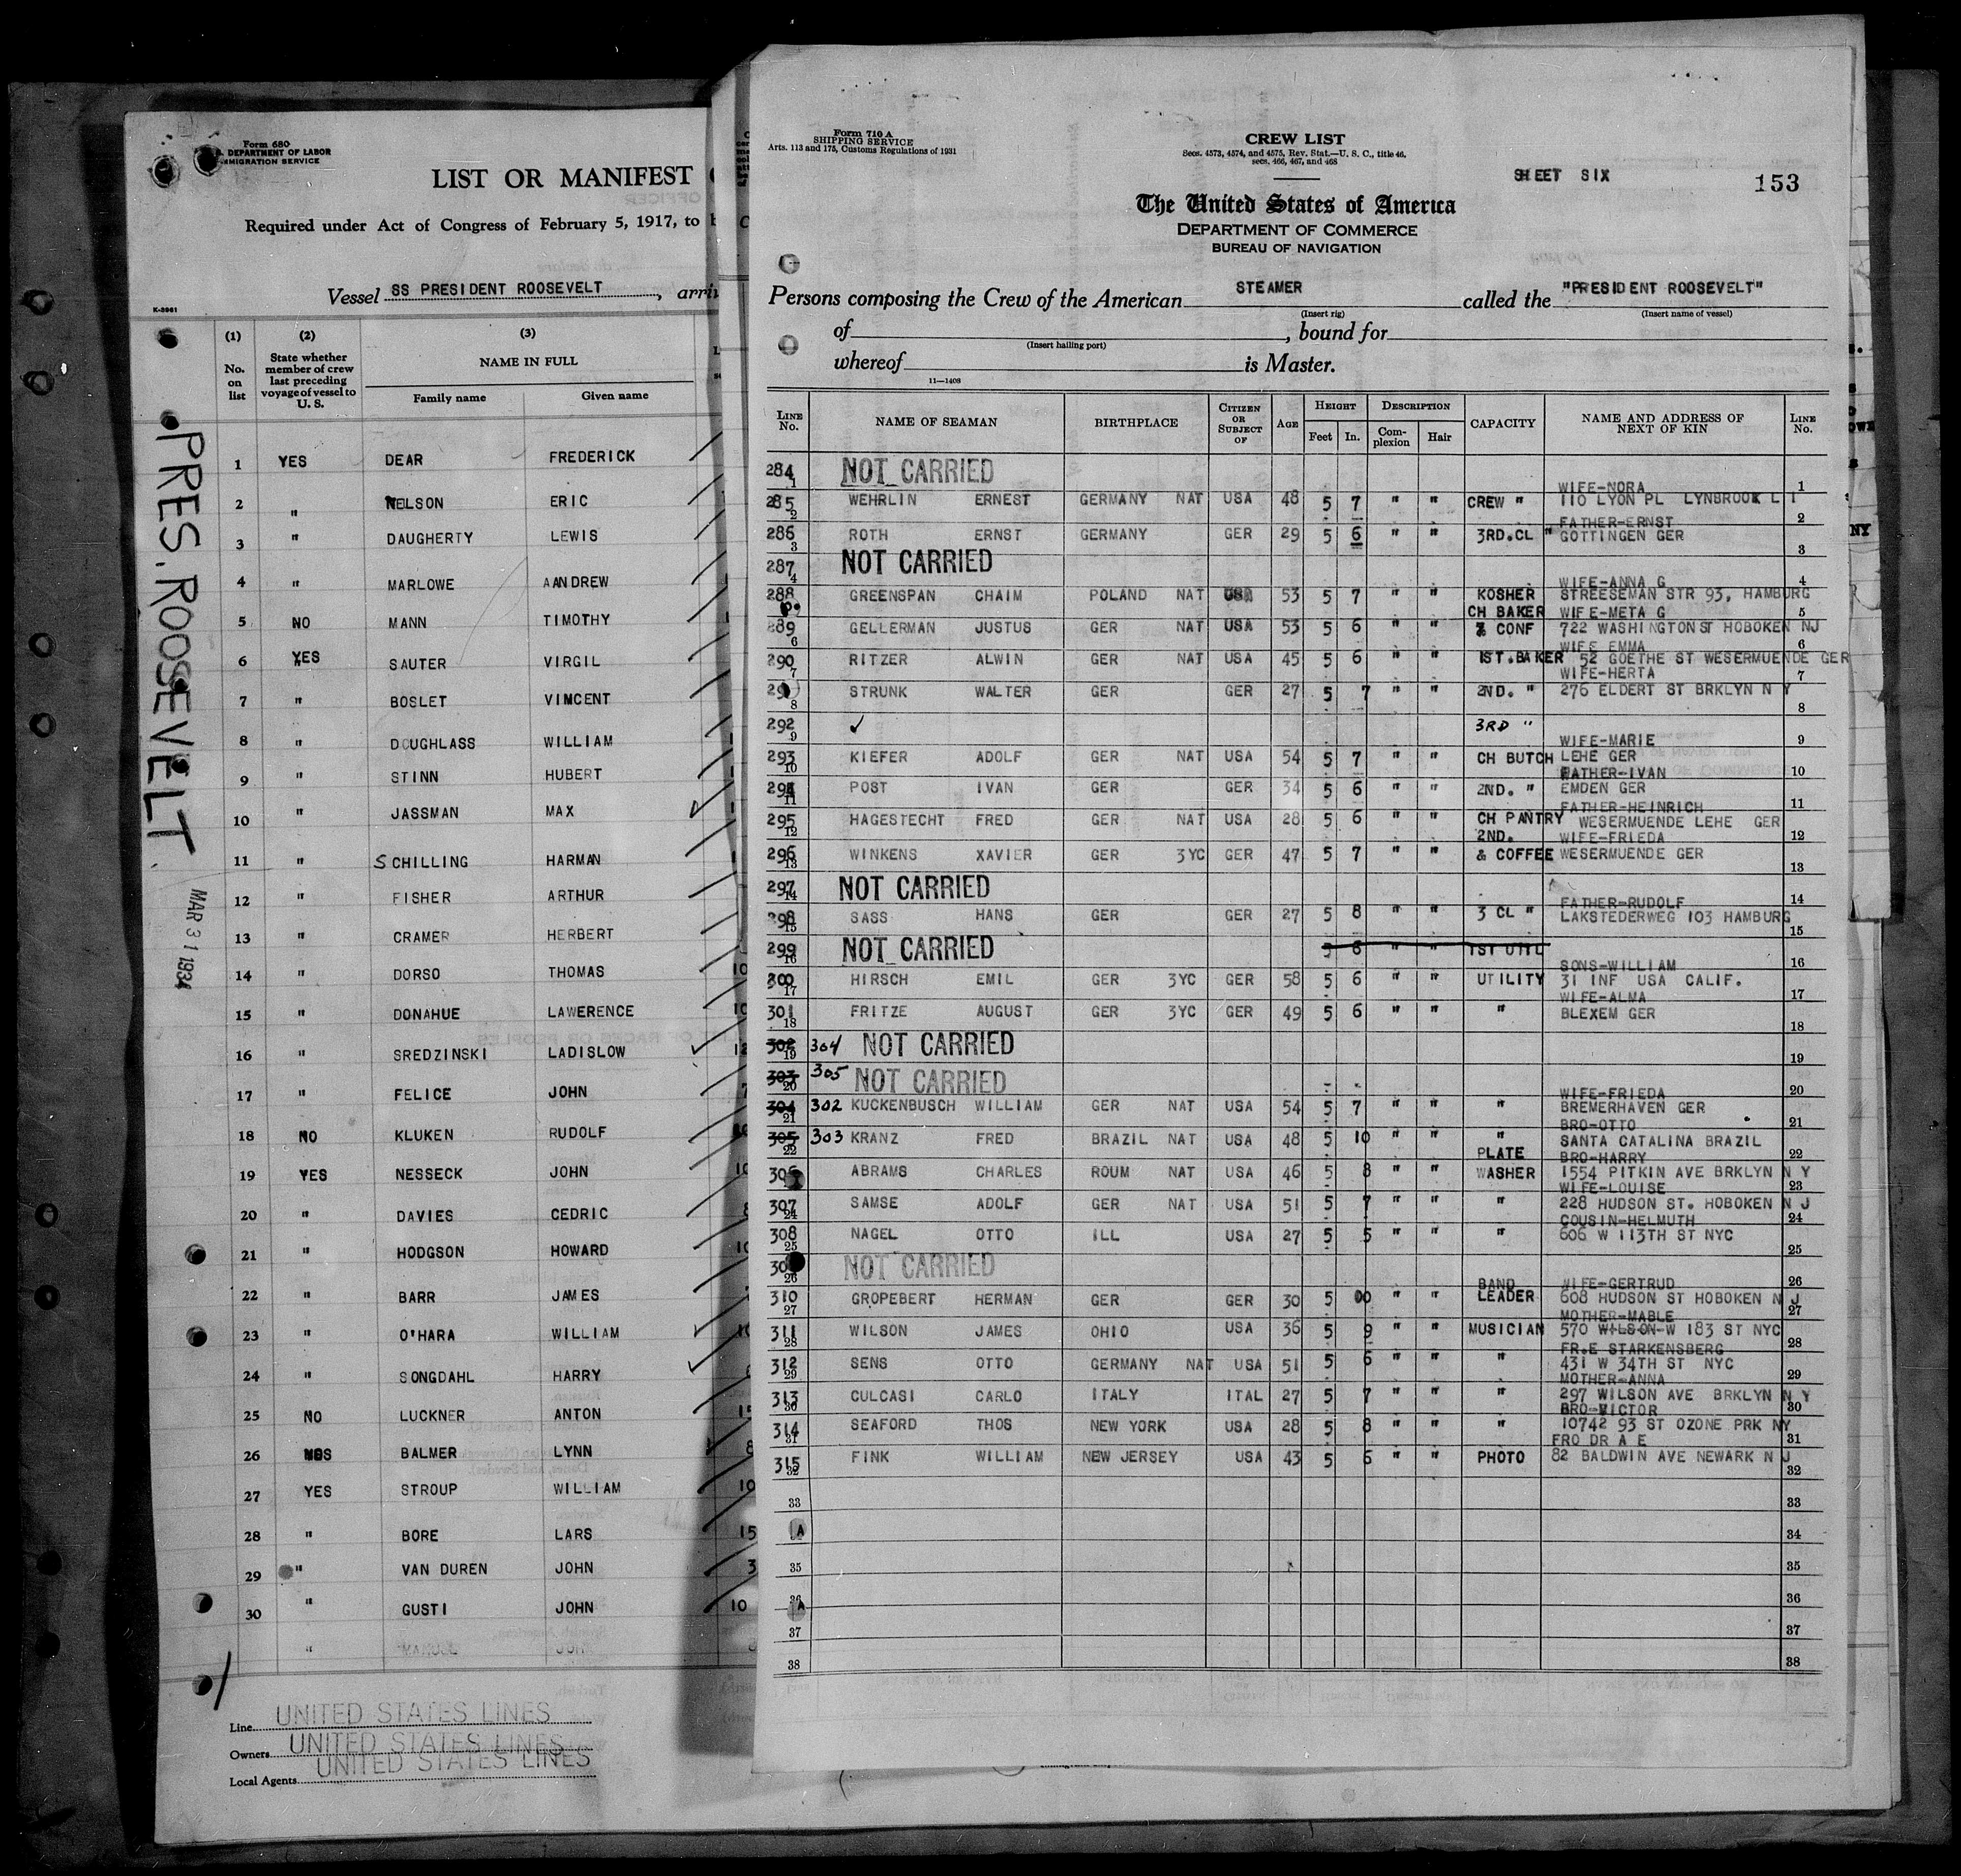 Form 680
DEPARTMENT OF LABOR
IMMIGRATION SERVICE
LIST OR MANIFEST
Required under Act of Congress of February 5, 1917, to
Vessel SS PRESIDENT ROOSEVELT, arri
K-3961
(1) (2) (3)
No. on list
State whether member of crew last preceding voyage of vessel to U. S.
NAME IN FULL
Family name Given name
1 YES DEAR FREDERICK
2 " NELSON ERIC
3 " DAUGHERTY LEWIS
4 " MARLOWE AANDREW
5 NO MANN TIMOTHY
6 YES SAUTER VIRGIL
7 " BOSLET VIMCENT
8 " DOUGHLASS WILLIAM
9 " STINN HUBERT
10 " JASSMAN MAX
11 " SCHILLING HARMAN
12 " FISHER ARTHUR
13 " CRAMER HERBERT
14 " DORSO THOMAS 10
15 " DONAHUE LAWERENCE 10
16 " SREDZINSKI LADISLOW
17 " FELICE JOHN
18 NO KLUKEN RUDOLF
19 YES NESSECK JOHN
20 " DAVIES CEDRIC
21 " HODGSON HOWARD
22 " BARR JAMES
23 " O'HARA WILLIAM
24 " SONGDAHL HARRY
25 NO LUCKNER ANTON
26 BALMER LYNN 8
27 YES STROUP WILLIAM 10
28 " BORE LARS 15
29 " VAN DUREN JOHN 3
30 " GUSTI JOHN 10
"
Line UNITED STATES LINES
Owners UNITED STATES LINES
Local Agents UNITED STATES LINES
PRES. ROOSEVELT
MAR 31 1934
Form 710 A
SHIPPING SERVICE
Arts. 113 and 175, Customs Regulations of 1931
CREW LIST
Secs. 4573, 4574, and 4575, Rev. Stat.—U. S. C., title 46,
secs. 466, 467, and 468
SHEET SIX
153
The United States of America
DEPARTMENT OF COMMERCE
BUREAU OF NAVIGATION
Persons composing the Crew of the American STEAMER called the "PRESIDENT ROOSEVELT"
(Insert rig) (Insert name of vessel)
of , bound for
(Insert hailing port)
whereof is Master.
11—1408
LINE No. NAME OF SEAMAN BIRTHPLACE CITIZEN OR SUBJECT OF AGE HEIGHT Feet In. DESCRIPTION Complexion Hair CAPACITY NAME AND ADDRESS OF NEXT OF KIN LINE No.
284 1 NOT CARRIED 1
WIFE-NORA
285 2 WEHRLIN ERNEST GERMANY NAT USA 48 5 7 " " CREW " 110 LYON PL LYNBROOK L I 2
FATHER-ERNST
286 3 ROTH ERNST GERMANY GER 29 5 6 " " 3RD.CL " GOTTINGEN GER 3
287 4 NOT CARRIED 4
WIFE-ANNA G
288 GREENSPAN CHAIM POLAND NAT USA 53 5 7 " " KOSHER STREESEMAN STR 93, HAMBURG 5
CH BAKER WIFE-META G
289 6 GELLERMAN JUSTUS GER NAT USA 53 5 6 " " & CONF 722 WASHINGTON ST HOBOKEN NJ 6
WIFE EMMA
290 7 RITZER ALWIN GER NAT USA 45 5 6 " " IST.BAKER 52 GOETHE ST WESERMUENDE GER 7
WIFE-HERTA
29 8 STRUNK WALTER GER GER 27 5 7 " " 2ND. " 276 ELDERT ST BRKLYN N Y 8
292 9 ✓ 3RD " 9
WIFE-MARIE
293 10 KIEFER ADOLF GER NAT USA 54 5 7 " " CH BUTCH LEHE GER 10
FATHER-IVAN
294 11 POST IVAN GER GER 34 5 6 " " 2ND. " EMDEN GER 11
FATHER-HEINRICH
295 12 HAGESTECHT FRED GER NAT USA 28 5 6 " " CH PANTRY WESERMUENDE LEHE GER 12
2ND. WIFE-FRIEDA
296 13 WINKENS XAVIER GER 3YC GER 47 5 7 " " & COFFEE WESERMUENDE GER 13
297 14 NOT CARRIED 14
FATHER-RUDOLF
298 15 SASS HANS GER GER 27 5 8 " " 3 CL " LAKSTEDERWEG 103 HAMBURG 15
299 16 NOT CARRIED 5 6 " " 1ST UTIL 16
SONS-WILLIAM
300 17 HIRSCH EMIL GER 3YC GER 58 5 6 " " UTILITY 31 INF USA CALIF. 17
WIFE-ALMA
301 18 FRITZE AUGUST GER 3YC GER 49 5 6 " " " BLEXEM GER 18
302 19 304 NOT CARRIED 19
303 20 305 NOT CARRIED 20
WIFE-FRIEDA
304 21 302 KUCKENBUSCH WILLIAM GER NAT USA 54 5 7 " " " BREMERHAVEN GER 21
BRO-OTTO
305 22 303 KRANZ FRED BRAZIL NAT USA 48 5 10 " " " SANTA CATALINA BRAZIL 22
PLATE BRO-HARRY
306 ABRAMS CHARLES ROUM NAT USA 46 5 8 " " WASHER 1554 PITKIN AVE BRKLYN N Y 23
WIFE-LOUISE
307 24 SAMSE ADOLF GER NAT USA 51 5 7 " " " 228 HUDSON ST. HOBOKEN N J 24
COUSIN-HELMUTH
308 25 NAGEL OTTO ILL USA 27 5 5 " " " 606 W 113TH ST NYC 25
30 26 NOT CARRIED 26
BAND WIFE-GERTRUD
310 27 GROPEBERT HERMAN GER GER 30 5 00 " " LEADER 608 HUDSON ST HOBOKEN N J 27
MOTHER-MABLE
311 28 WILSON JAMES OHIO USA 36 5 9 " " MUSICIAN 570 WILSON-W 183 ST NYC 28
FR.E STARKENSBERG
312 29 SENS OTTO GERMANY NAT USA 51 5 6 " " " 431 W 34TH ST NYC 29
MOTHER-ANNA
313 30 CULCASI CARLO ITALY ITAL 27 5 7 " " " 297 WILSON AVE BRKLYN N Y 30
BRO-VICTOR
314 31 SEAFORD THOS NEW YORK USA 28 5 8 " " " 10742 93 ST OZONE PRK NY 31
FRO DR A E
315 32 FINK WILLIAM NEW JERSEY USA 43 5 6 " " PHOTO 82 BALDWIN AVE NEWARK N J 32
33 33
A 34
35 35
36 A 36
37 37
38 38
NY